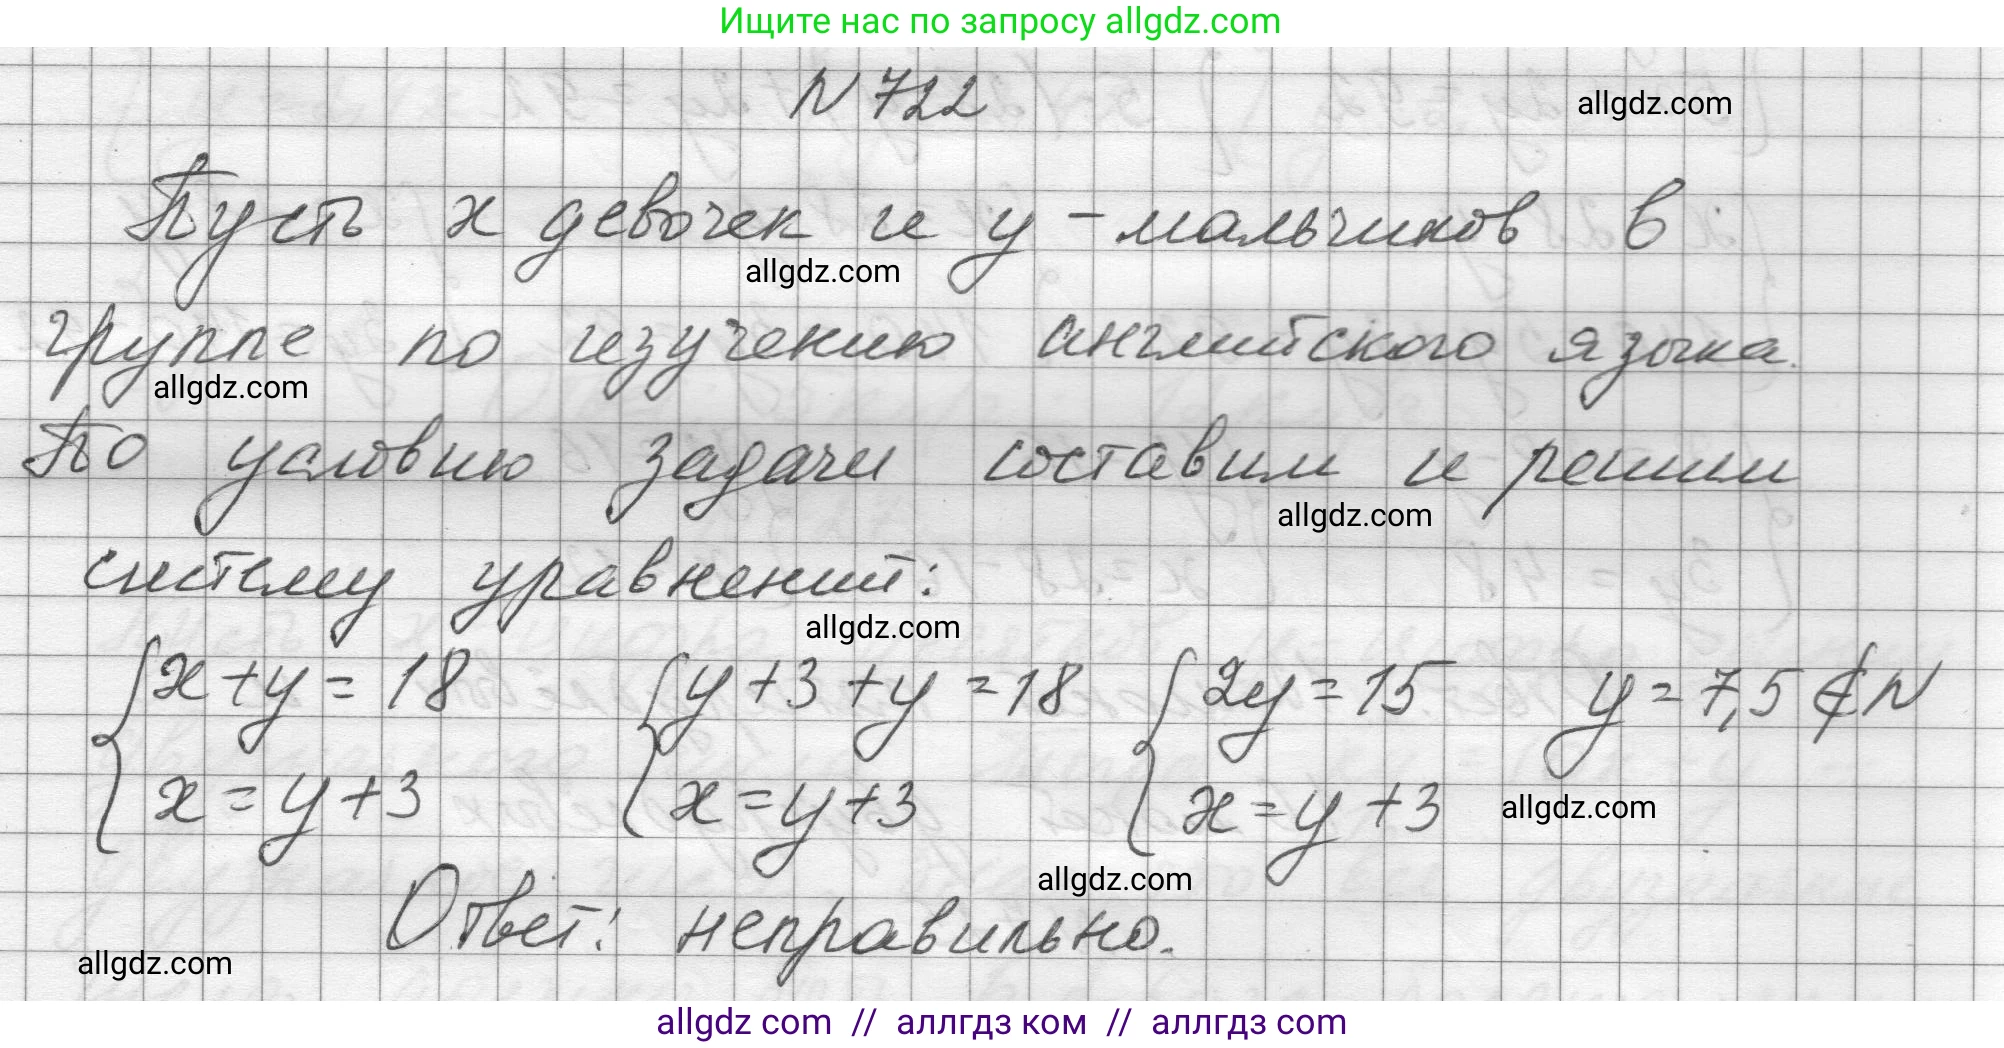 Ищите нас по запросу allgdz.com
N 722
allgdz.com
Пусть x девочек и y - мальчиков в
allgdz.com
группе по изучению английского языка.
allgdz.com
По условию задачи составим и решим
allgdz.com
систему уравнений:
allgdz.com
{ x + y = 18 { y + 3 + y = 18 { 2y = 15 y = 7,5 ∉ N
x = y + 3 x = y + 3 x = y + 3
allgdz.com
allgdz.com
Ответ: неправильно.
allgdz.com
allgdz com // аллгдз ком // аллгдз com